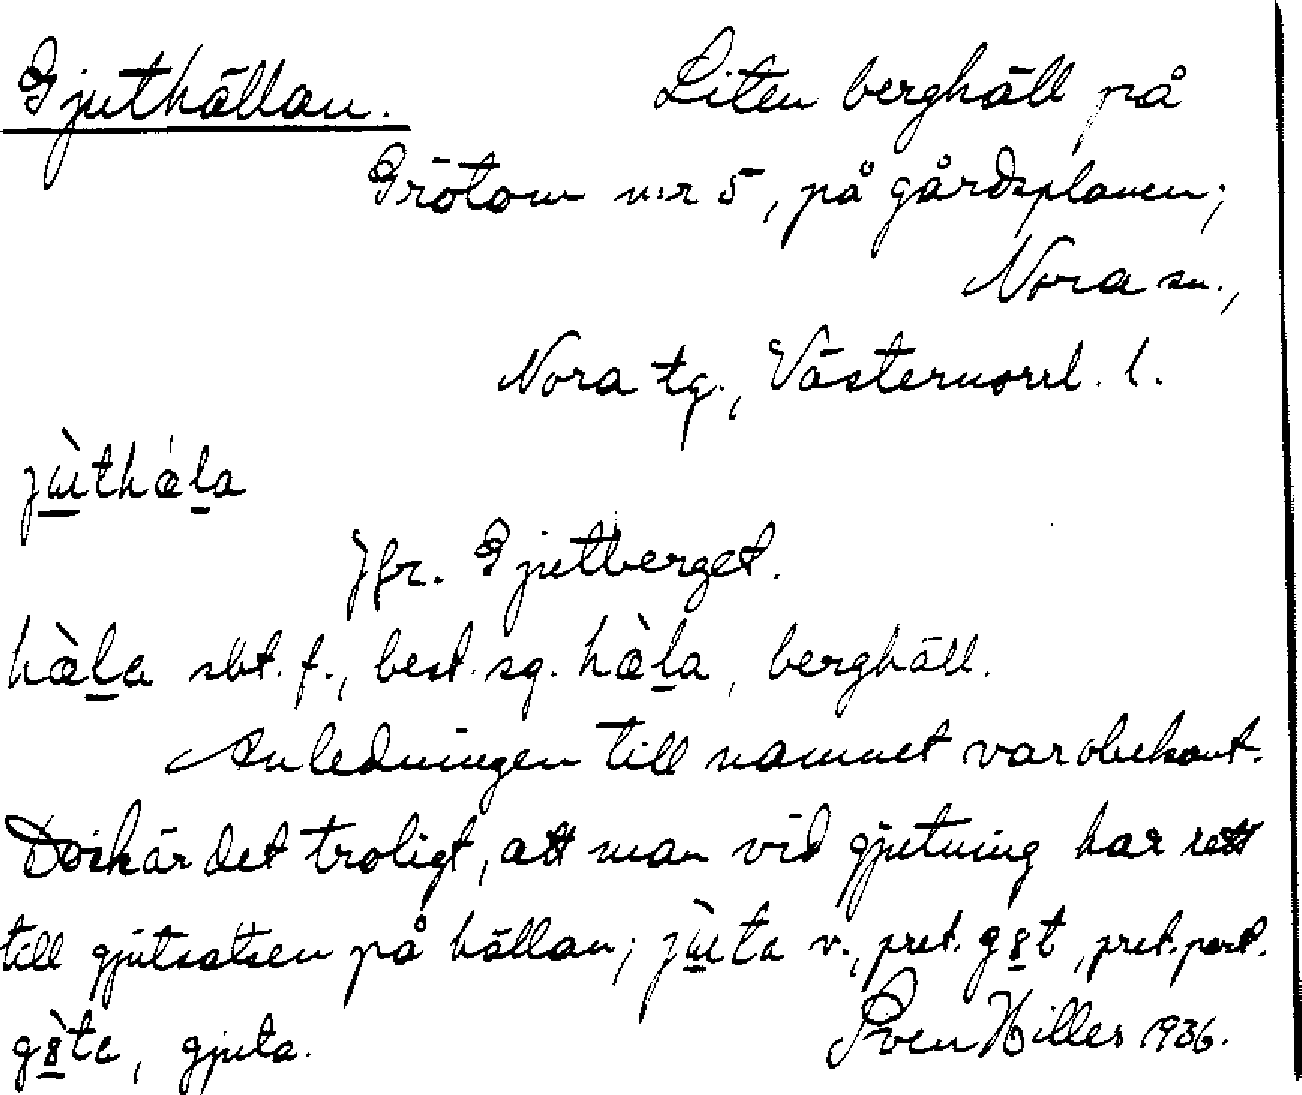 Gjuthällan. Liten berghäll på
Grötom n:r 5, på gårdsplanen;
Nora sn.,
Nora tg., Västernorrl. l.
jùthæ̀la
Jfr. Gjutberget.
hæ̀la sbt. f., best. sg. hæ̀la, berghäll.
Anledningen till namnet var obekant.
Dock är det troligt, att man vid gjutning har rett
till gjutsatsen på hällan; jùta v., pret. g8t, pret. part.
g8̀te, gjuta. Sven Hilles 1936.